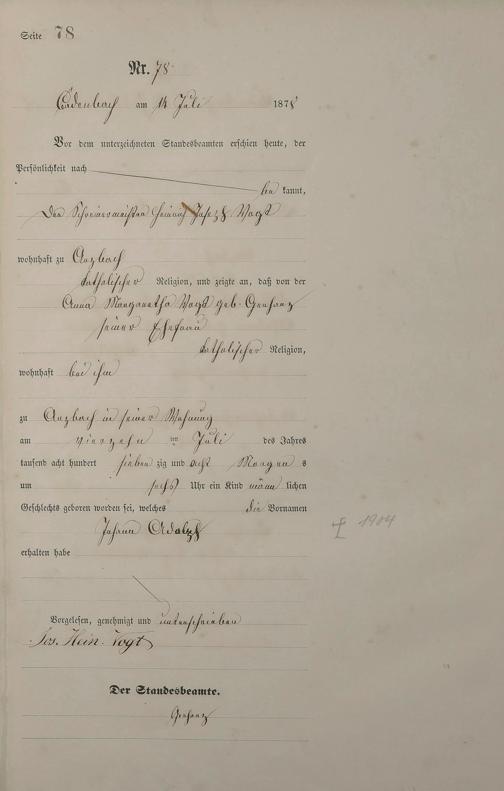 Seite 78
Nr. 78
am 14 Juli 1878
Vor dem unterzeichneten Standesbeamten erschien heute, der
Persönlichkeit nach
be kannt,
Der Schreinermeister Heinrich Joseph Vogt
wohnhaft zu Anzbach
katholischer Religion, und zeigte an, daß von der
Anna Margaretha Vogt geb.
seiner Ehefrau
katholischer Religion,
wohnhaft bei ihm
zu Anzbach in seiner Wohnung
am vierzehn ten Juli des Jahres
tausend acht hundert sieben zig und acht Morgen s
um sechs Uhr ein Kind männ lichen
Geschlechts geboren worden sei, welches die Vornamen
Johann Adolph
erhalten habe
† 1904
Vorgelesen, genehmigt und unterschrieben
Jos. Hein. Vogt
Der Standesbeamte.